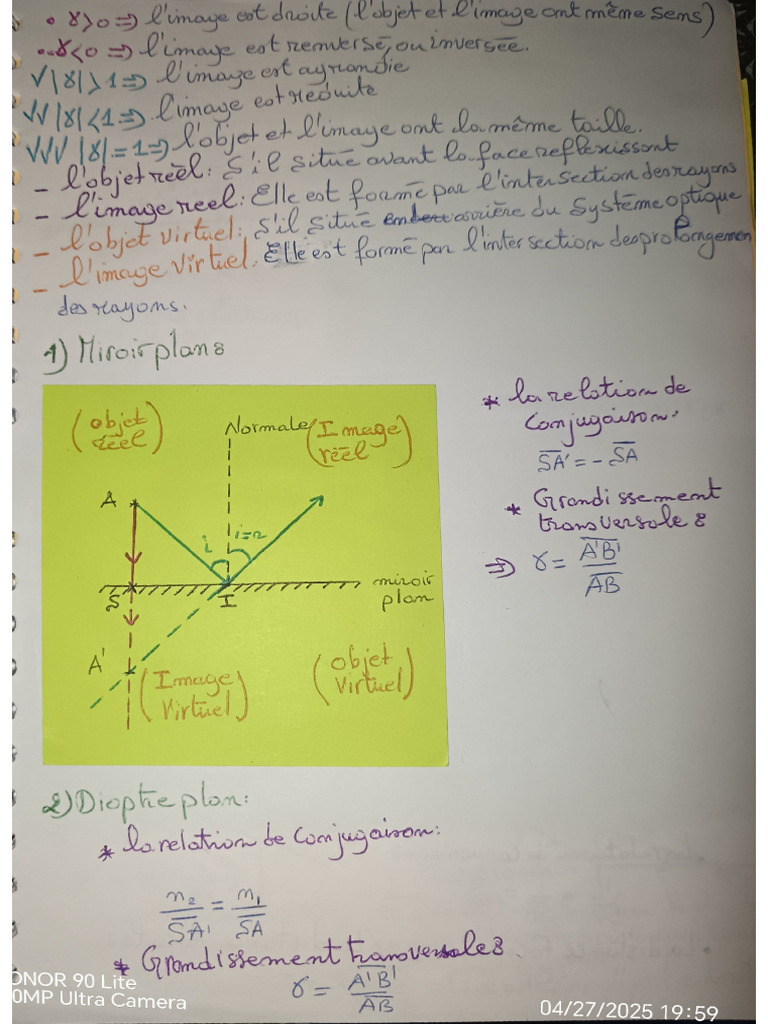 • γ>0 => l'image est droite (l'objet et l'image ont même sens)
•• γ<0 => l'image est remversé, ou inversée.
√ |γ|>1 => l'image est agrandie
√√ |γ|<1 => l'image est réduite
√√√ |γ|=1 => l'objet et l'image ont la même taille.
- l'objet réèl: S'il situé avant la face reflexissont
- l'image reel: Elle est formé par l'intersection des rayons
- l'objet virtuel: S'il situé arrière du système optique
- l'image virtuel: Elle est formé par l'intersection desprolongemen
des rayons.
1) Miroir plan:
(objet réel)
Normale
(Image réel)
A
i
i=r
S
I
miroir plan
A'
(Image virtuel)
(objet virtuel)
* la relation de
Conjugaison:
S̅A̅'̅ = - S̅A̅
* Grandissement
transversale:
=> γ = A̅'̅B̅'̅ / A̅B̅
2) Dioptre plan:
* la relation de conjugaison:
n₂ / S̅A̅'̅ = n₁ / S̅A̅
* Grandissement transversale:
γ = A̅'̅B̅'̅ / A̅B̅
ONOR 90 Lite
0MP Ultra Camera
04/27/2025 19:59